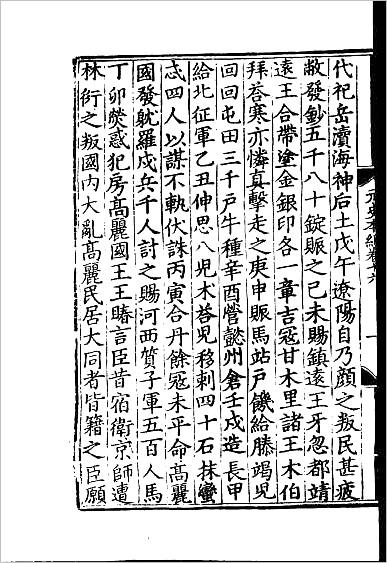 代祀岳瀆海神后土戊午遼陽自乃顏之叛民甚疲
敝發鈔五千八十錠賑之己未賜鎮遠王牙忽都靖
遠王合帶塗金銀印各一章吉寇甘木里諸王木伯
拜荅寒亦憐真擊走之庚申賑馬站戶饑給滕竭兒
回回屯田三千戶牛種辛酉營懿州倉壬戌造長甲
給北征軍乙丑伸思八兒朮荅兒移剌四十石抹蠻
忒四人以謀不軌伏誅丙寅合丹餘寇未平命高麗
國發躭羅戍兵千人討之賜河西質子軍五百人馬
丁卯熒惑犯房高麗國王王賰言臣昔宿衛京師遭
林衍之叛國內大亂高麗民居大同者皆籍之臣願